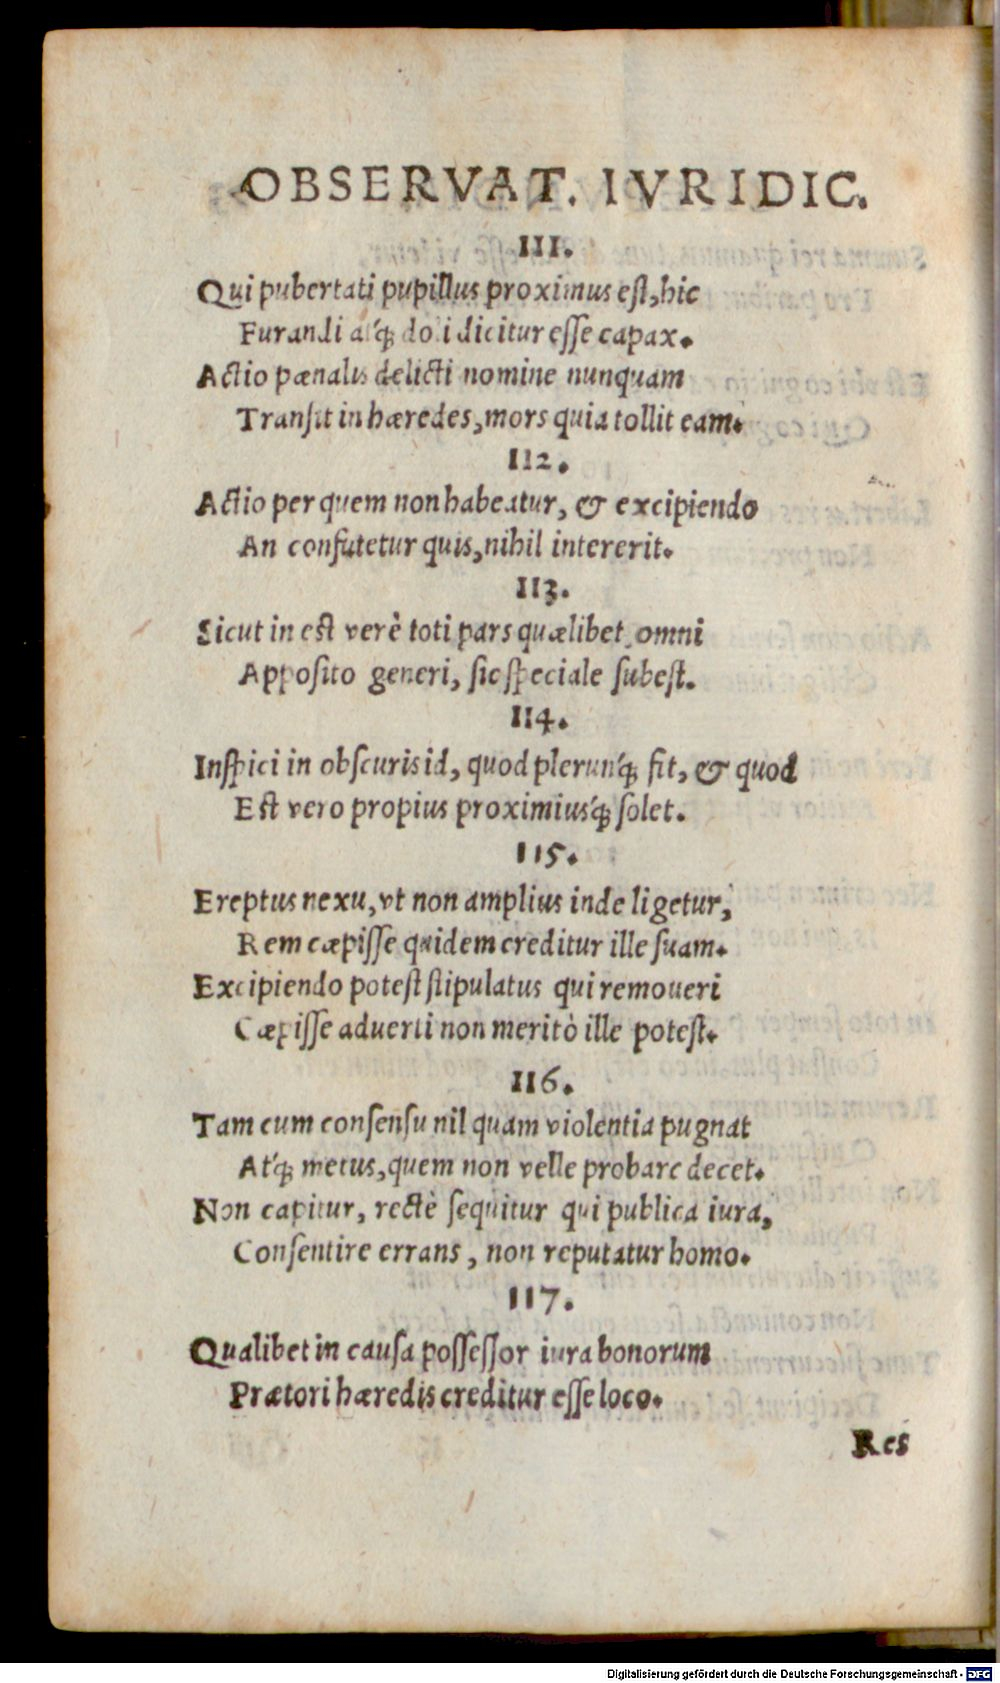 OBSERVAT. IVRIDIC.
111.
Qui pubertati pupillus proximus est, hic
Furandi atq́; doli dicitur esse capax.
Actio pænalis delicti nomine nunquam
Transit in hæredes, mors quia tollit eam.
112.
Actio per quem non habeatur, & excipiendo
An confutetur quis, nihil intererit.
113.
Sicut in est verè toti pars quælibet, omni
Apposito generi, sic speciale subest.
114.
Inspici in obscuris id, quod plerunq́; fit, & quod
Est vero propius proximiusq́; solet.
115.
Ereptus nexu, vt non amplius inde ligetur,
Rem cæpisse quidem creditur ille suam.
Excipiendo potest stipulatus qui remoueri
Cæpisse aduerti non meritò ille potest.
116.
Tam cum consensu nil quam violentia pugnat
Atq́; metus, quem non velle probare decet.
Non capitur, rectè sequitur qui publica iura,
Consentire errans, non reputatur homo.
117.
Qualibet in causa possessor iura bonorum
Prætori hæredis creditur esse loco.
Res
Digitalisierung gefördert durch die Deutsche Forschungsgemeinschaft - DFG